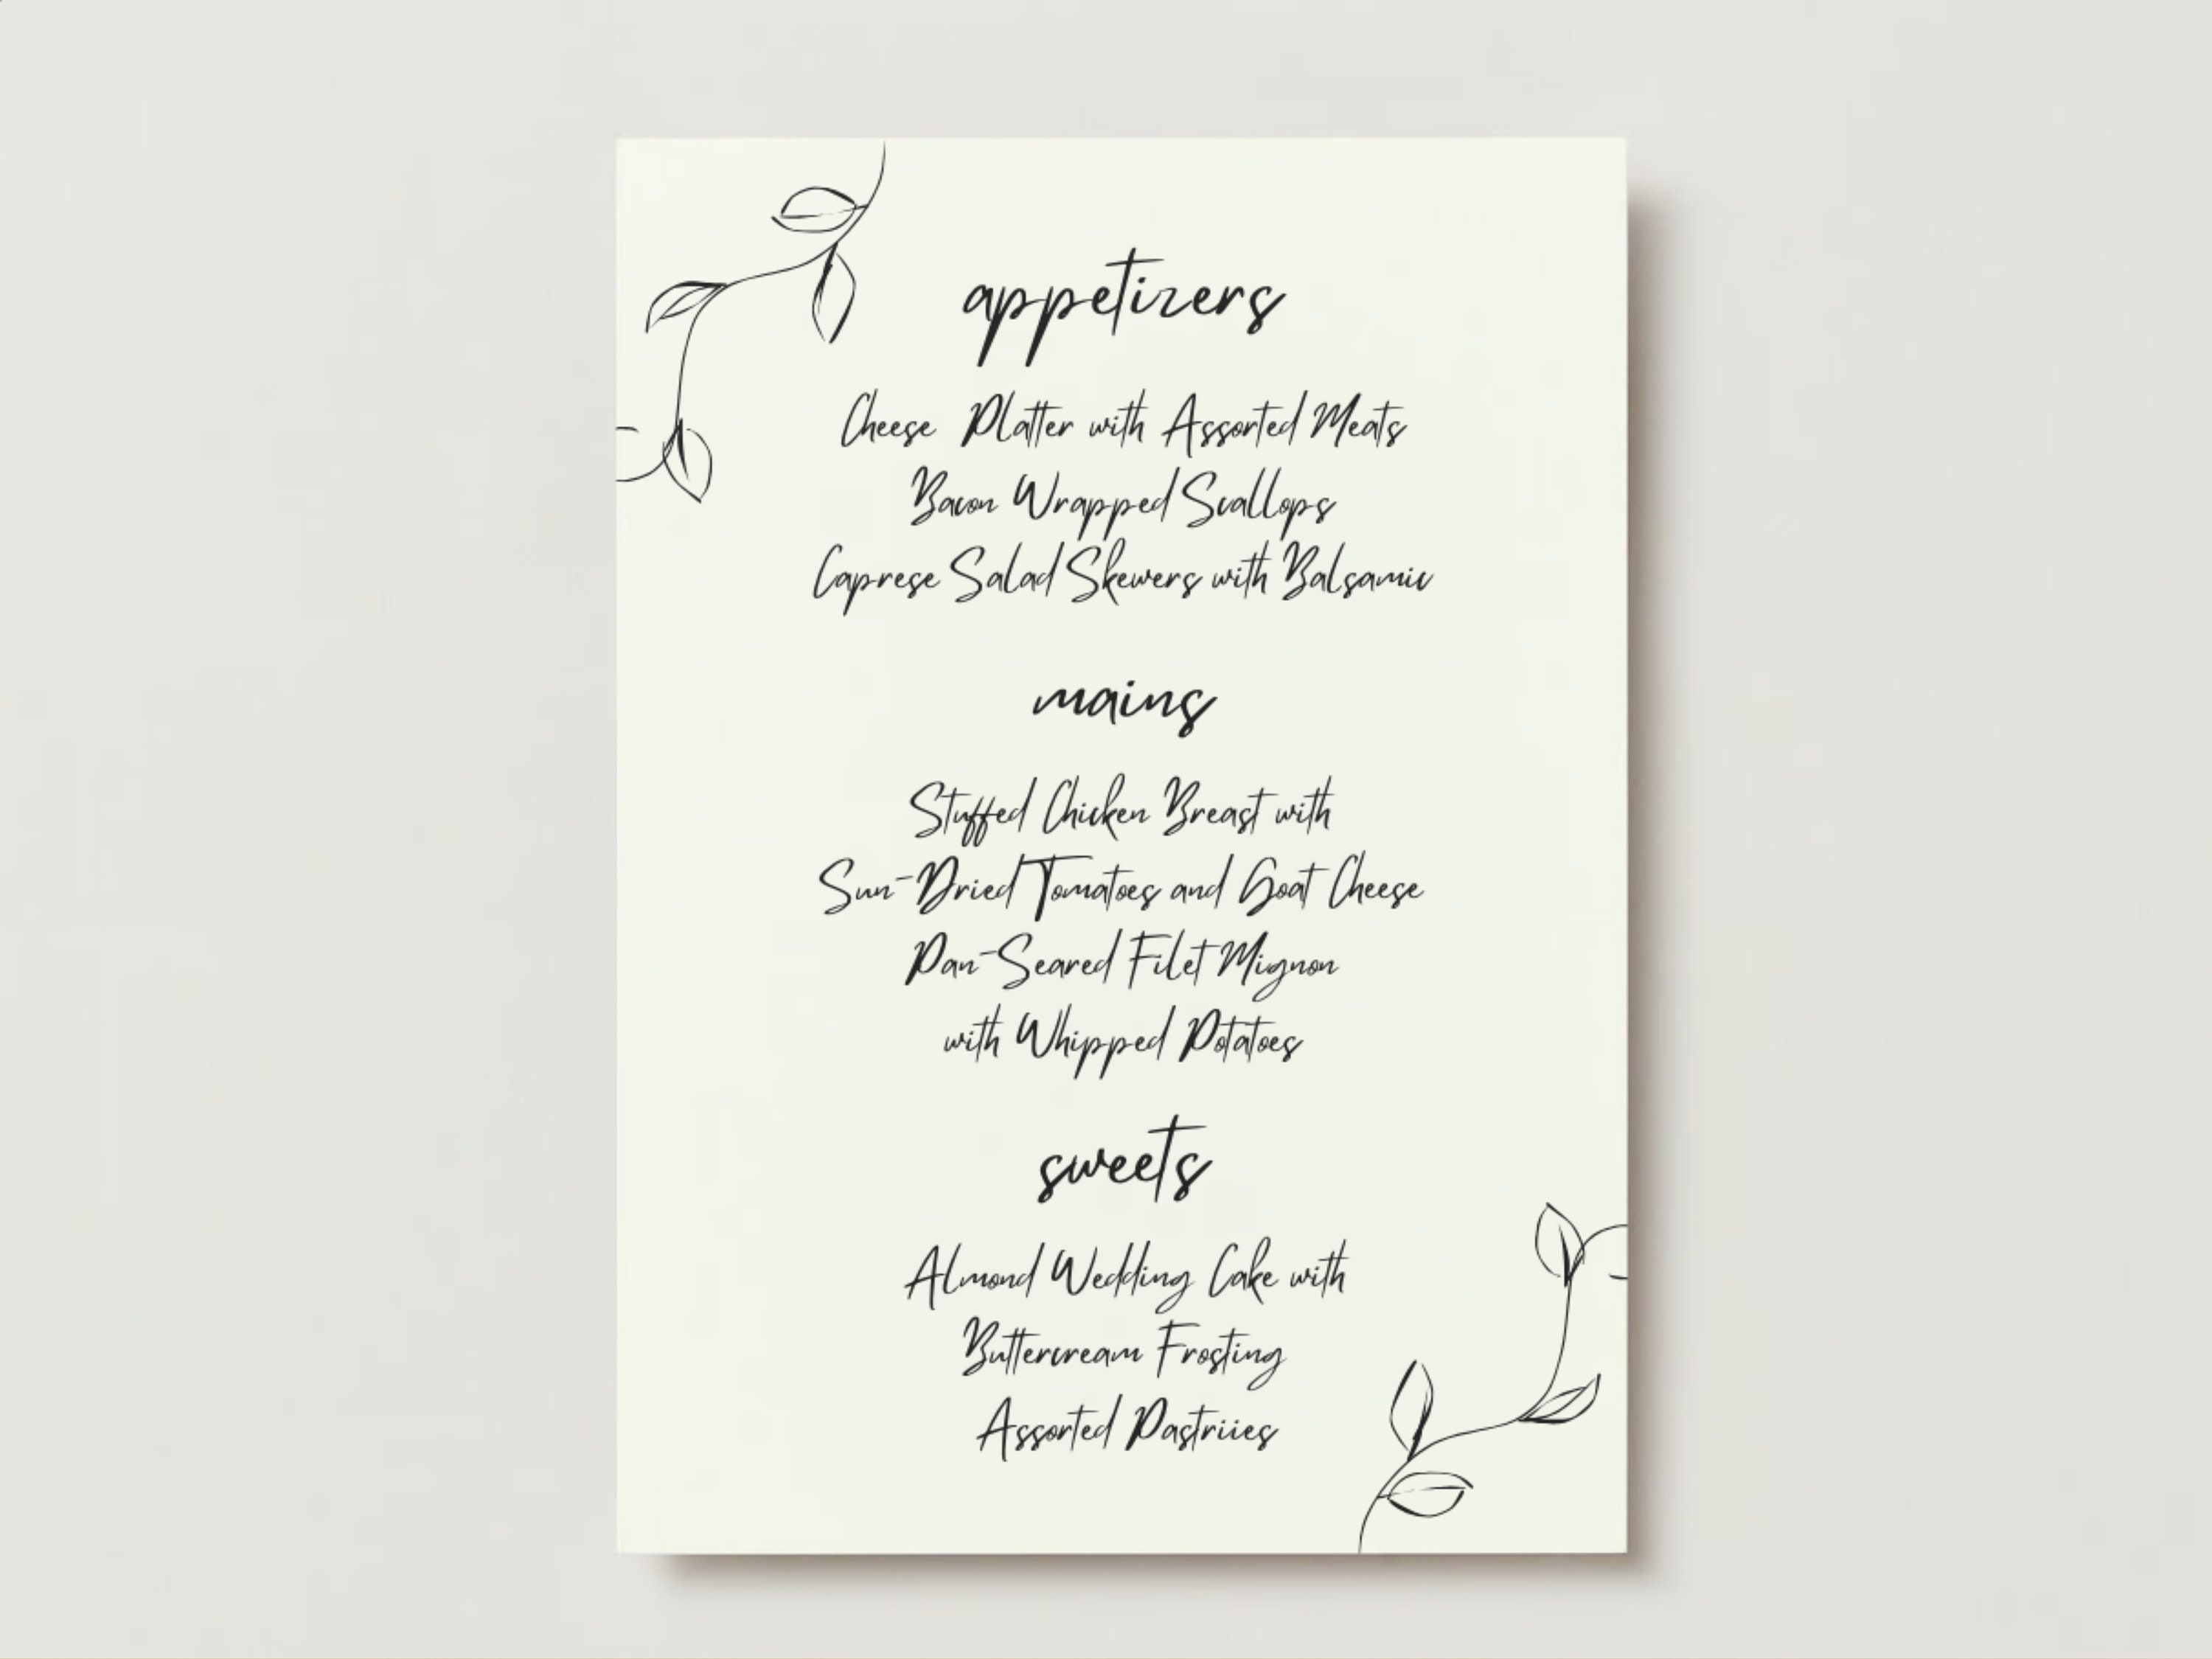 appetizers
Cheese Platter with Assorted Meats
Bacon Wrapped Scallops
Caprese Salad Skewers with Balsamic
mains
Stuffed Chicken Breast with
Sun-Dried Tomatoes and Goat Cheese
Pan-Seared Filet Mignon
with Whipped Potatoes
sweets
Almond Wedding Cake with
Buttercream Frosting
Assorted Pastriies